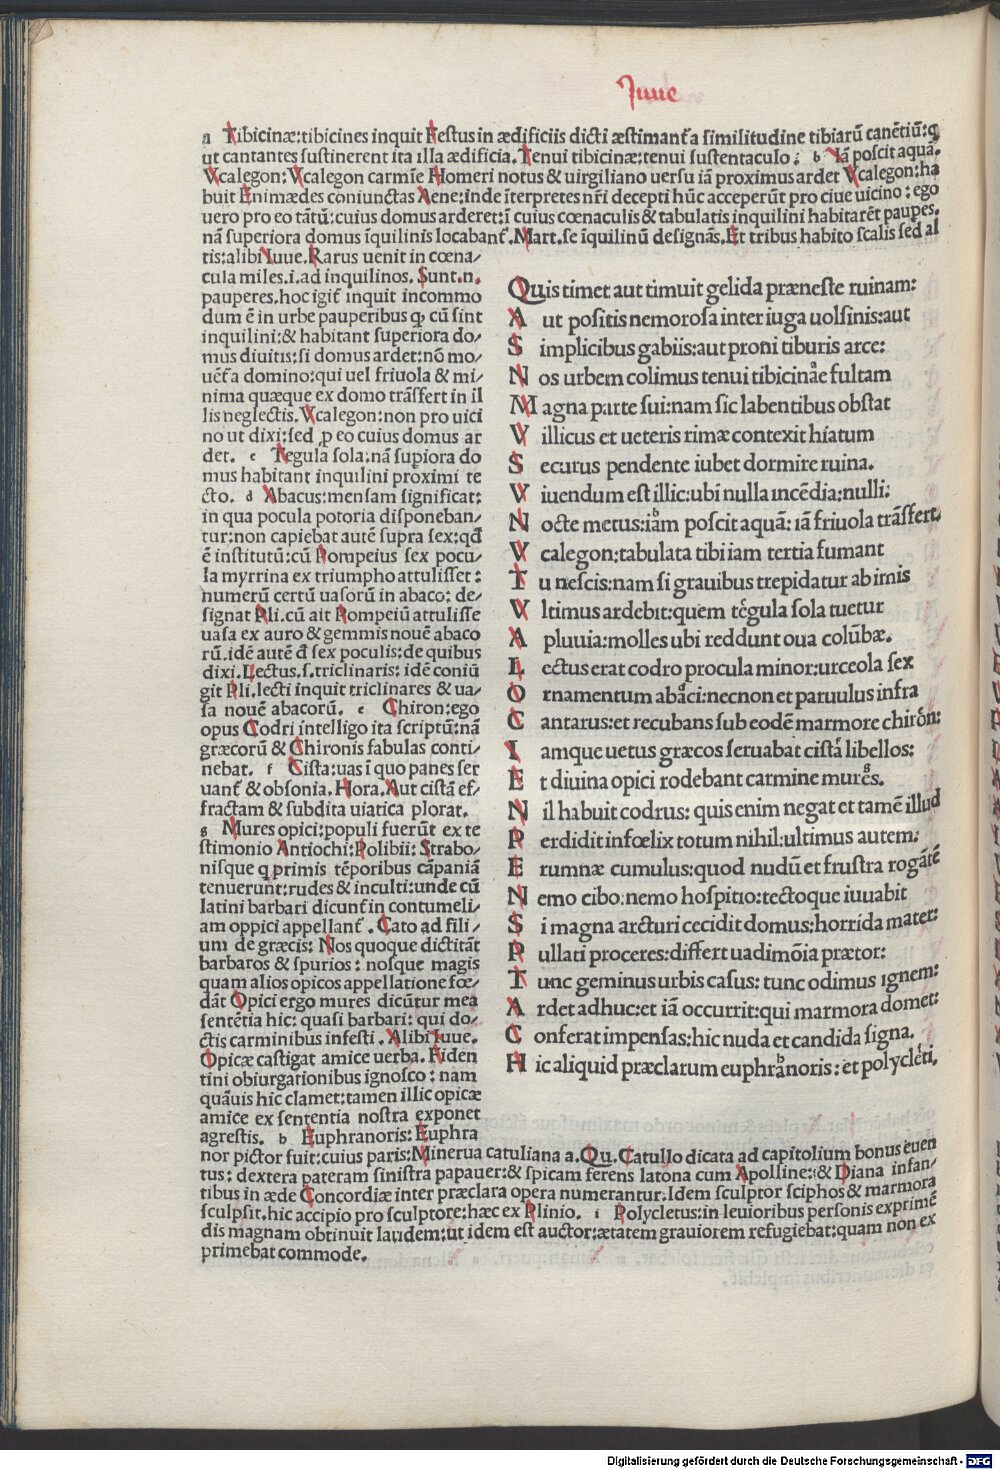 Juue
a Tibicinæ:tibicines inquit Festus in ædificiis dicti æstimant᷑ a similitudine tibiarū canētiū:q
ut cantantes sustinerent ita illa ædificia.Tenui tibicinæ:tenui sustentaculo. b Iā poscit aquā.
Vcalegon:Vcalegon carmīe Homeri notus & uirgiliano uersu iā proximus ardet Vcalegon:ha
buit Enim ædes coniunctas Aenee:inde īterpretes nr̄i decepti hūc acceperūt pro ciue uicino:ego
uero pro eo tātū:cuius domus arderet:ī cuius cœnaculis & tabulatis inquilini habitarēt paupes.
nā superiora domus īquilinis locabant᷑.Mart.se īquilinū designās.Et tribus habito scalis sed al
tis:alibi Iuue.Rarus uenit in cœna/
cula miles.i.ad inquilinos. Sunt.n.
pauperes.hoc igit᷑ inquit incommo
dum ē in urbe pauperibus ꝙ cū sint
inquilini:& habitant superiora do/
mus diuitis:si domus ardet:nō mo/
uēt᷑ a domino:qui uel friuola & mi/
nima quæque ex domo trāsfert in il
lis neglectis.Vcalegon:non pro uici
no ut dixi:sed ꝓ eo cuius domus ar
det. c Tegula sola:nā supiora do
mus habitant inquilini proximi te
cto. d Abacus:mensam significat:
in qua pocula potoria disponeban/
tur:non capiebat autē supra sex:qđ
ē institutū:cū Pompeius sex pocu/
la myrrina ex triumpho attulisset:
numerū certū uasorū in abaco: de/
signat Pli.cū ait Pompeiū attulisse
uasa ex auro & gemmis nouē abaco
rū.idē autē đ sex poculis:de quibus
dixi.Lectus.s.triclinaris: idē coniū
git Pli.lecti inquit triclinares & ua/
sa nouē abacorū. e Chiron:ego
opus Codri intelligo ita scriptū:nā
græcorū & Chironis fabulas conti/
nebat. f Cista:uas ī quo panes ser
uant᷑ & obsonia.Hora.Aut cistā ef/
fractam & subdita uiatica plorat.
g Mures opici:populi fuerūt ex te
stimonio Antiochi:Polibii: Strabo/
nisque q primis tēporibus cāpaniā
tenuerunt:rudes & inculti:unde cū
latini barbari dicunt᷑ in contumeli/
am oppici appellant᷑.Cato ad fili/
um de græcis: Nos quoque dictitāt
barbaros & spurios: nosque magis
quam alios opicos appellatione fœ/
dāt Opici ergo mures dicūtur mea
sentētia hic: quasi barbari: qui do/
ctis carminibus infesti.Alibi Iuue.
Opicæ castigat amice uerba.Fiden
tini obiurgationibus ignosco: nam
quāuis hic clamet:tamen illic opicæ
amice ex sententia nostra exponet
agrestis. h Euphranoris:Euphra
nor pictor fuit:cuius paris:Minerua catuliana a.Qu.Catullo dicata ad capitolium bonus euen
tus: dextera pateram sinistra papauer:& spicam ferens latona cum Apolline:& Diana infan/
tibus in æde Concordiæ inter præclara opera numerantur.Idem sculptor sciphos & marmora
sculpsit.hic accipio pro sculptore:hæc ex Plinio. i Polycletus:in leuioribus personis exprimē
dis magnam obtinuit laudem:ut idem est auctor:ætatem grauiorem refugiebat:quam non ex
primebat commode.
Quis timet aut timuit gelida præneste ruinam:
A ut positis nemorosa inter iuga uolsinis:aut
S implicibus gabiis:aut proni tiburis arce:
N os urbem colimus tenui tibicinaͣe fultam
M agna parte sui:nam sic labentibus obstat
V illicus et ueteris rimæ contexit hiatum
S ecurus pendente iubet dormire ruina.
V iuendum est illic:ubi nulla incēdia:nulli:
N octe metus:iam poscit aquā: iā friuola trāsfert.
V calegon:tabulata tibi iam tertia fumant
T u nescis:nam si grauibus trepidatur ab imis
V ltimus ardebit:quem tegula sola tuetur
A pluuia:molles ubi reddunt oua colūbæ.
L ectus erat codro procula minor:urceola sex
O rnamentum abaci:necnon et paruulus infra
C antarus:et recubans sub eodē marmore chiron:
I amque uetus græcos seruabat cistā libellos:
E t diuina opici rodebant carmine mures.
N il habuit codrus: quis enim negat et tamē illud
P erdidit infœlix totum nihil:ultimus autem:
E rumnæ cumulus:quod nudū et frustra rogātē
N emo cibo:nemo hospitio:tectoque iuuabit
S i magna arcturi cecidit domus:horrida mater:
P ullati proceres:differt uadimōia prætor:
T unc geminus urbis casus: tunc odimus ignem:
A rdet adhuc:et iā occurrit:qui marmora domet:
C onferat impensas:hic nuda et candida signa.
H ic aliquid præclarum euphranoris: et polycleti.
Digitalisierung gefördert durch die Deutsche Forschungsgemeinschaft - DFG